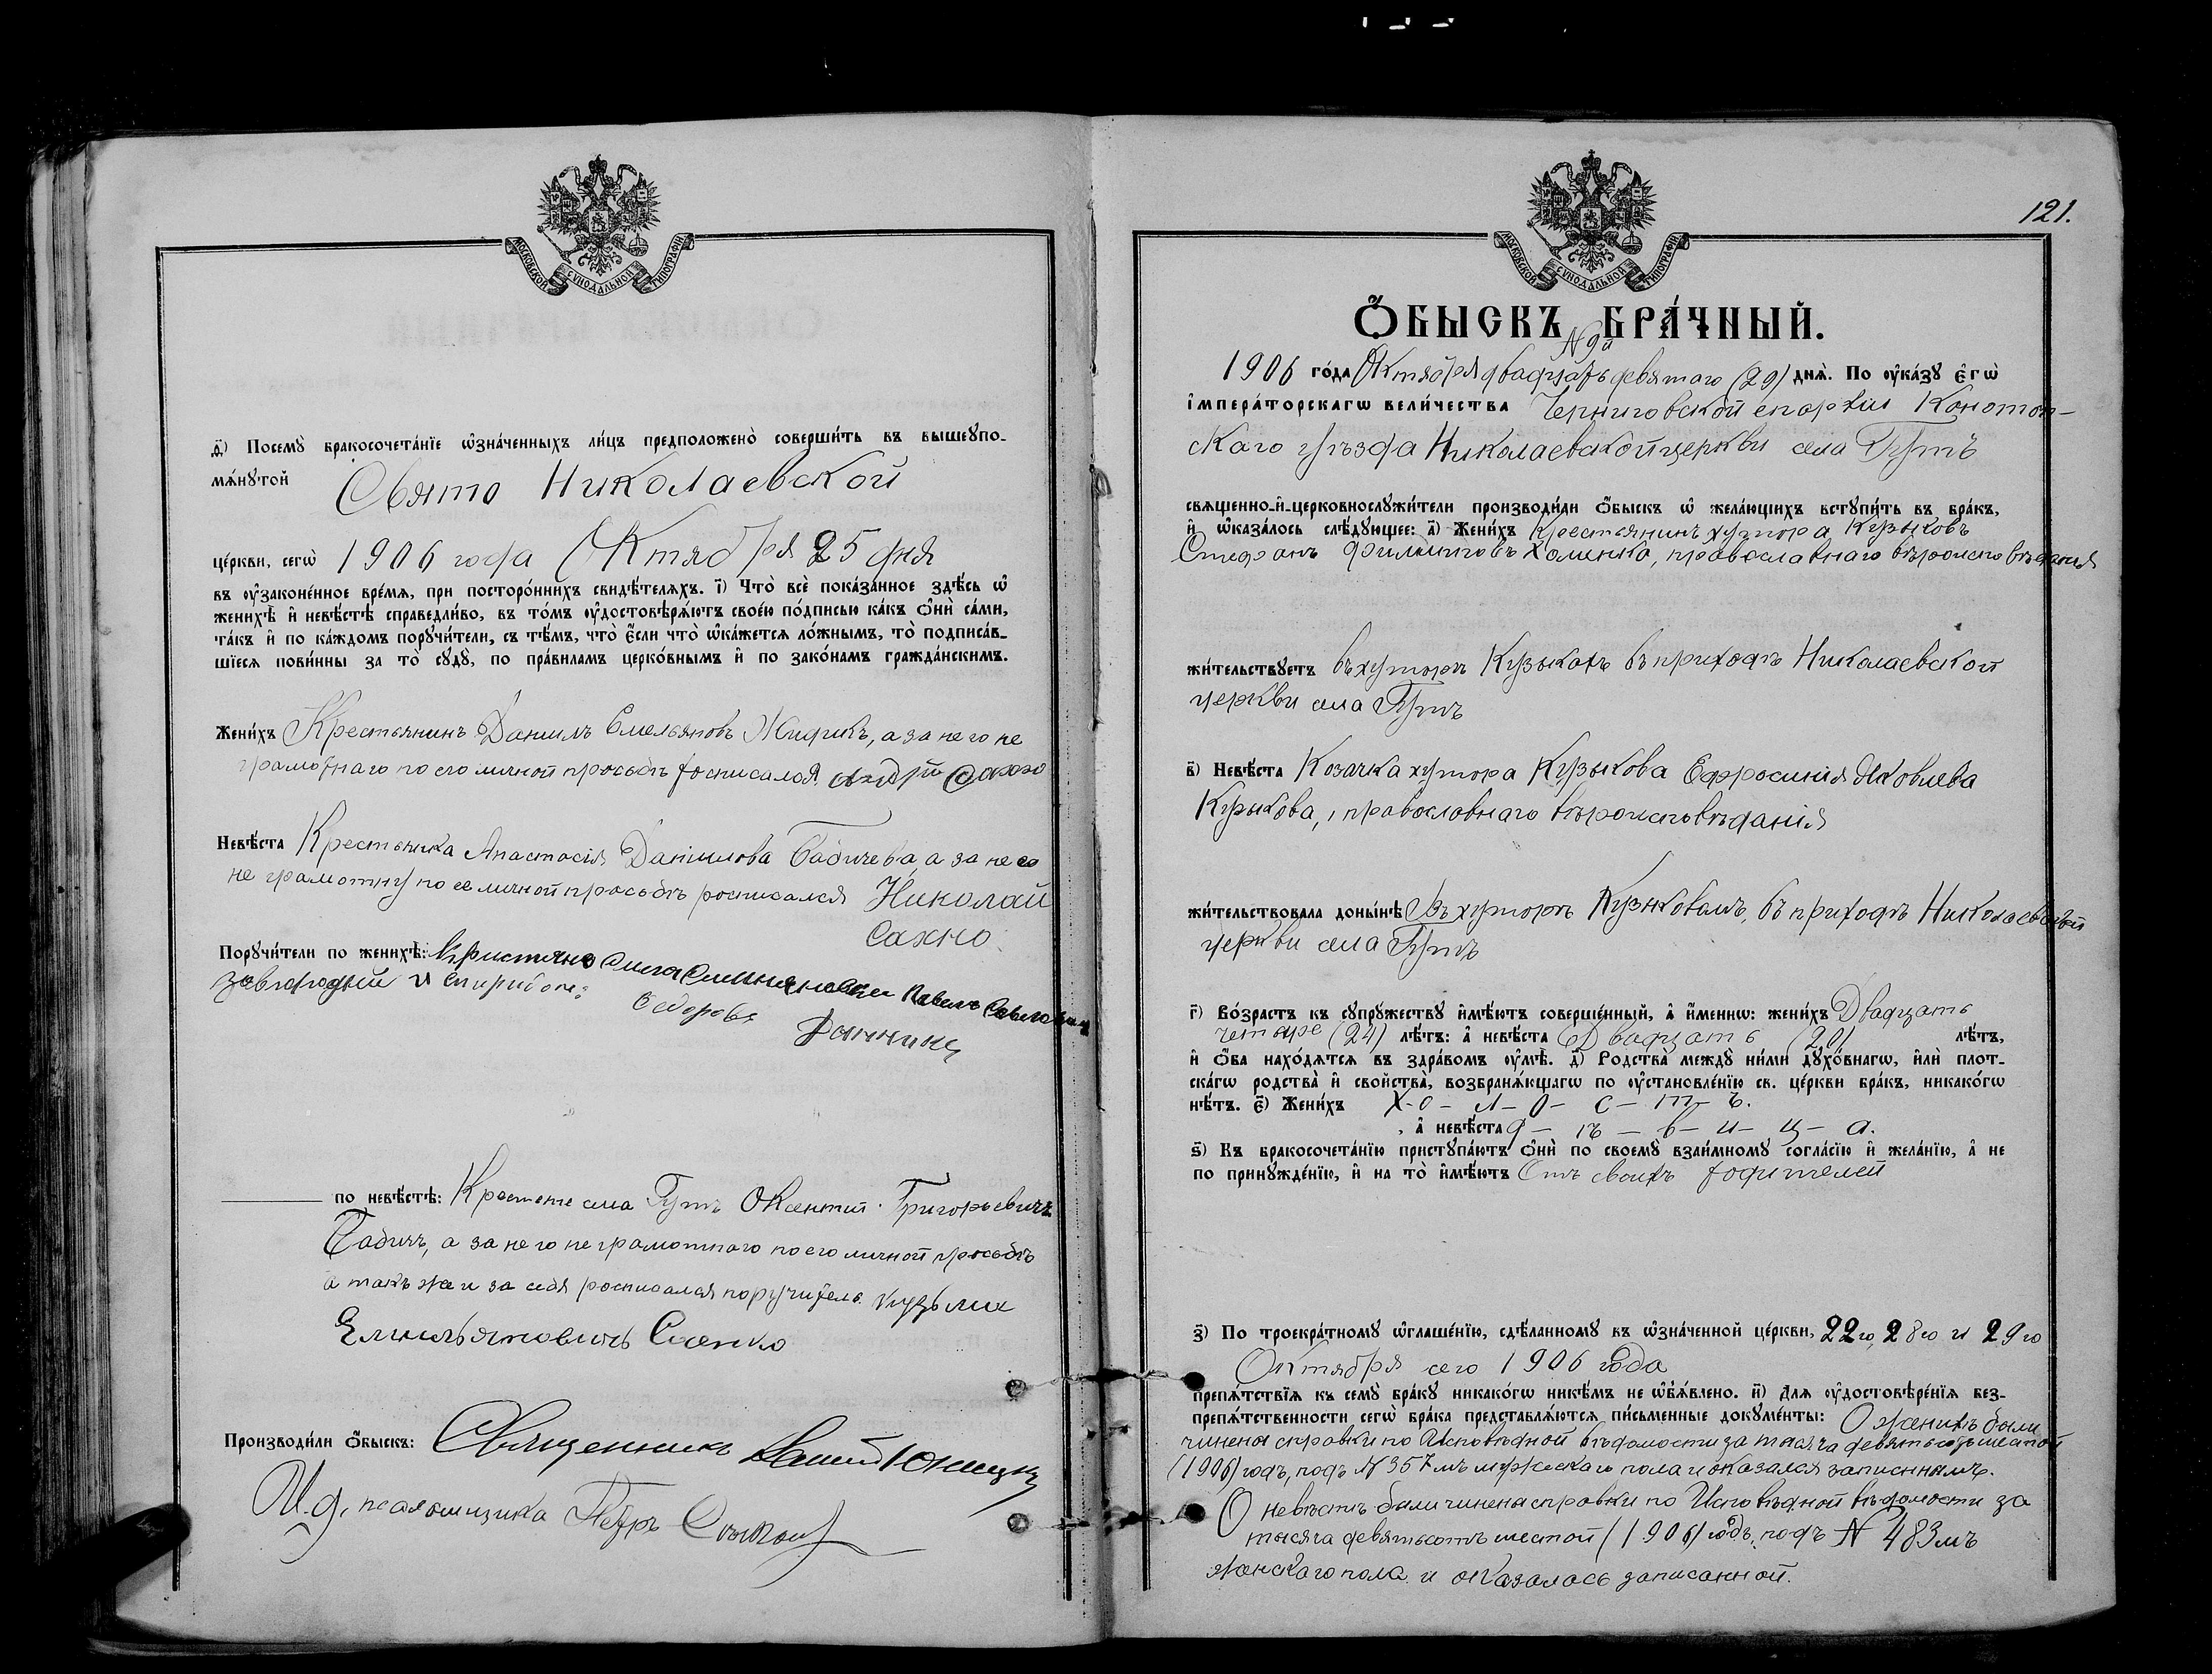 МОСКОВСКОЙ СУНОДАЛЬНОЙ ТИПОГРАФІИ
д҃) Посемꙋ̀ бракосочета́нїе ѡ҆зна́ченныхъ ли́цъ предположено̀ соверши́ть въ вышеꙋпо-
мѧ́нꙋтой Свято Николаевской
це́ркви, сегѡ̀ 1906 года Октября 25 дня
въ ᲂу҆законе́нное вре́мѧ, при посторо́ннихъ свидѣ́телѧхъ. і҃) Что̀ всѐ пока́занное здѣ́сь ѡ҆
женихѣ̀ и҆ невѣ́стѣ справедли́во, въ то́мъ ᲂу҆достовѣрѧ́ютъ свое́ю по́дписью ка́къ ѻ҆нѝ са́ми,
та́къ и҆ по ка́ждомъ порꙋчи́тели, съ тѣ́мъ, что̀ є҆́сли что̀ ѡ҆ка́жетсѧ ло́жнымъ, то̀ подписа́в-
шїесѧ пови́нны за то̀ сꙋдꙋ̀, по пра́виламъ церко́внымъ и҆ по зако́намъ гражда́нскимъ.
Жени́хъ Крестьянинъ Даниилъ Емельяновъ Жидикъ, а за него не
грамотнаго по его личной просьбѣ росписался Андрій Сахно
Невѣ́ста Крестьянка Анастасія Даніилова Бабичева, а за нее
не грамотну по ее личной просьбѣ росписался Николай
Сахно
Порꙋчи́тели по женихѣ̀:
и Спиридонъ
Федоровъ
по невѣ́стѣ: Крестяне села Гутъ Оксентій Григорьевичъ
Бабичъ, а за него не грамотнаго по его личной просьбѣ
а такъ же и за себя росписался поручитель Кузьма
Емильяновичъ Саенко
Производи́ли ѻ҆́быскъ: Священникъ Юницкій
И. д. псаломщика Петръ
МОСКОВСКОЙ СУНОДАЛЬНОЙ ТИПОГРАФІИ
121.
Ѻ҆́БЫСКЪ БРА́ЧНЫЙ.
N 9й
1906 го́да Октября двадцать девятаго (29) днѧ̀. По ᲂу҆ка́зꙋ є҆гѡ̀
і҆мпера́торскагѡ вели́чества Черниговской епархіи Конотоп-
скаго уѣзда Николаевской церкви села Гутъ
свѧщенно-и҆-церковнослꙋжи́тели производи́ли ѻ҆́быскъ ѡ҆ жела́ющихъ встꙋпи́ть въ бра́къ,
и҆ ѡ҆каза́лось слѣ́дꙋющее: а҃) Жени́хъ Крестьянинъ хутора Кузьковъ
Стефанъ Филиповъ Хоменко, православнаго вѣроисповѣданія
жи́тельствꙋетъ въ хуторѣ Кузькахъ въ приходѣ Николаевской
церкви села Гутъ
в҃) Невѣ́ста Козачка хутора Кузькова Ефросинія Яковлева
Кузькова, православнаго вѣроисповѣданія
жи́тельствовала доны́нѣ Въ хуторѣ Кузьковомъ, въ приходѣ Николаевской
церкви села Гутъ
г҃) Во́зрастъ къ сꙋпрꙋ́жествꙋ и҆мѣ́ютъ соверше́нный, а҆ и҆́меннѡ: жени́хъ Двадцать
четыре (24) лѣ́тъ: а҆ невѣ́ста Двадцать (20) лѣ́тъ,
и҆ ѻ҆́ба нахо́дѧтсѧ въ здра́вомъ ᲂу҆мѣ̀. д҃) Родства̀ междꙋ̀ ни́ми дꙋхо́внагѡ, и҆лѝ плот-
ска́гѡ родства̀ и҆ сво́йства, возбранѧ́ющагѡ по ᲂу҆становле́нїю св. це́ркви бра́къ, никако́гѡ
нѣ́тъ. є҃) Жени́хъ Х-о-л-о-с-т-ъ.
, а҆ невѣ́ста д-ѣ-в-и-ц-а.
ѕ҃) Къ бракосочета́нїю пристꙋпа́ютъ ѻ҆нѝ по своемꙋ̀ взаи́мномꙋ согла́сїю и҆ жела́нїю, а҆ не
по принꙋжде́нїю, и҆ на то̀ и҆мѣ́ютъ Отъ своихъ родителей
з҃) По троекра́тномꙋ ѡ҆глаше́нїю, сдѣ́ланномꙋ въ ѡ҆зна́ченной це́ркви, 22го, 28го и 29го
Октября сего 1906 года
препѧ́тствїѧ къ семꙋ̀ бра́кꙋ никако́гѡ никѣ́мъ не ѡ҆б̾ѧ́влено. и҃) Длѧ ᲂу҆достовѣре́нїѧ без-
препѧ́тственности сегѡ̀ бра́ка представлѧ́ютсѧ пи́сьменные докꙋме́нты: О женихѣ были
чинены справки по Исповѣдной вѣдомости за тысяча девятьсотъ шестой
(1906) годъ, подъ N 357мъ мужескаго пола и оказался записнымъ.
О невѣстѣ были чинены справки по Исповѣдной вѣдомости за
тысяча девятьсотъ шестой (1906) годъ, подъ N 483мъ
женскаго пола и оказалась записанной.